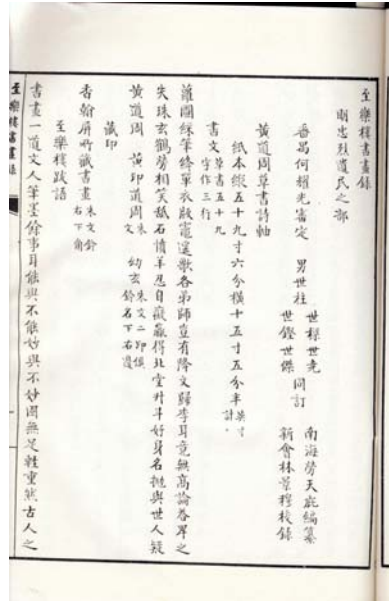 至樂樓書畫錄
明忠烈遺民之部
番禺何耀光審定 男世柱 世樑世堯 世鏗世傑 同訂 南海勞天庇編纂 新會林葉穆校錄
黃道周草書詩軸
紙本縱五十九寸六分橫十五寸五分半 英寸計。
書文 草書五十九字作三行
蘿圖綵筆終單衣敝竈還歌各弟師豈有降文歸李耳竟無高論眷畀之
失珠玄鶴勞相笑舐石憤羊忍自癡贏得北堂升斗好身名拋與世人疑
黃道周 黃印道周 朱文 幼玄 朱文二印俱鈐名下右邊
藏印
香翰屏所藏書畫 朱文鈐右下角
至樂樓跋語
書畫一道文人筆墨餘事耳能與不能妙與不妙固無足輕重然古人之
至樂樓書畫錄